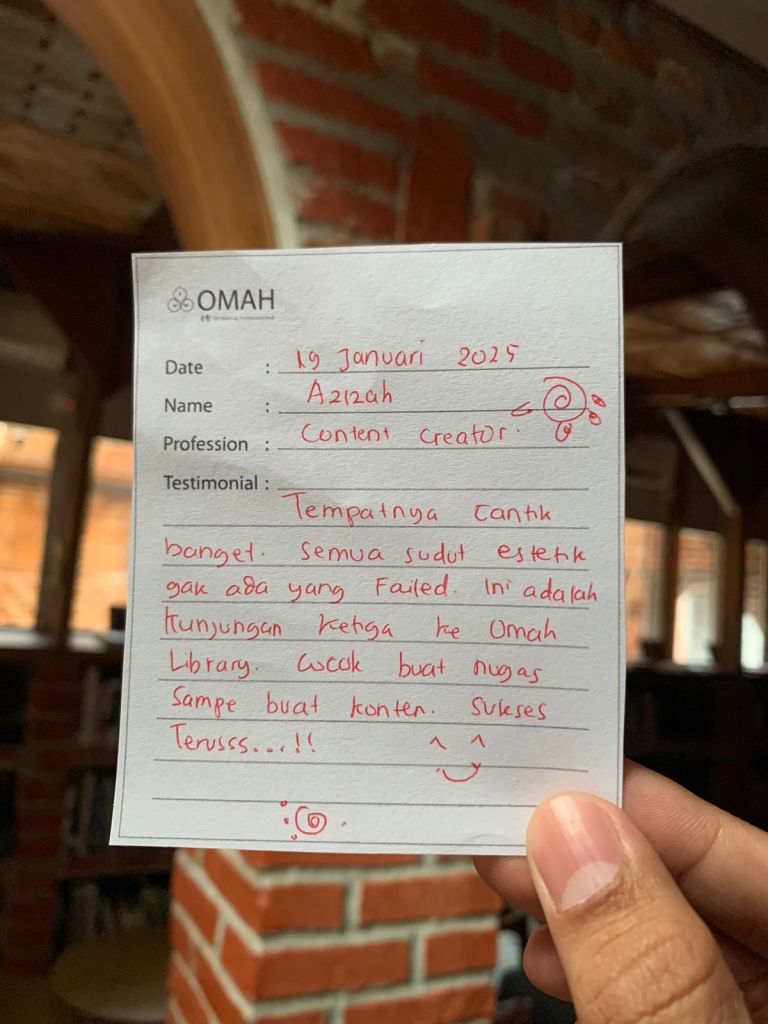 OMAH
Date : 19 Januari 2025
Name : Azizah
Profession : Content creator.
Testimonial :
Tempatnya cantik
banget. Semua sudut estetik
gak ada yang Failed. Ini adalah
kunjungan ketiga ke Omah
Library. Cocok buat nugas
Sampe buat konten. Sukses
Terusss...!!